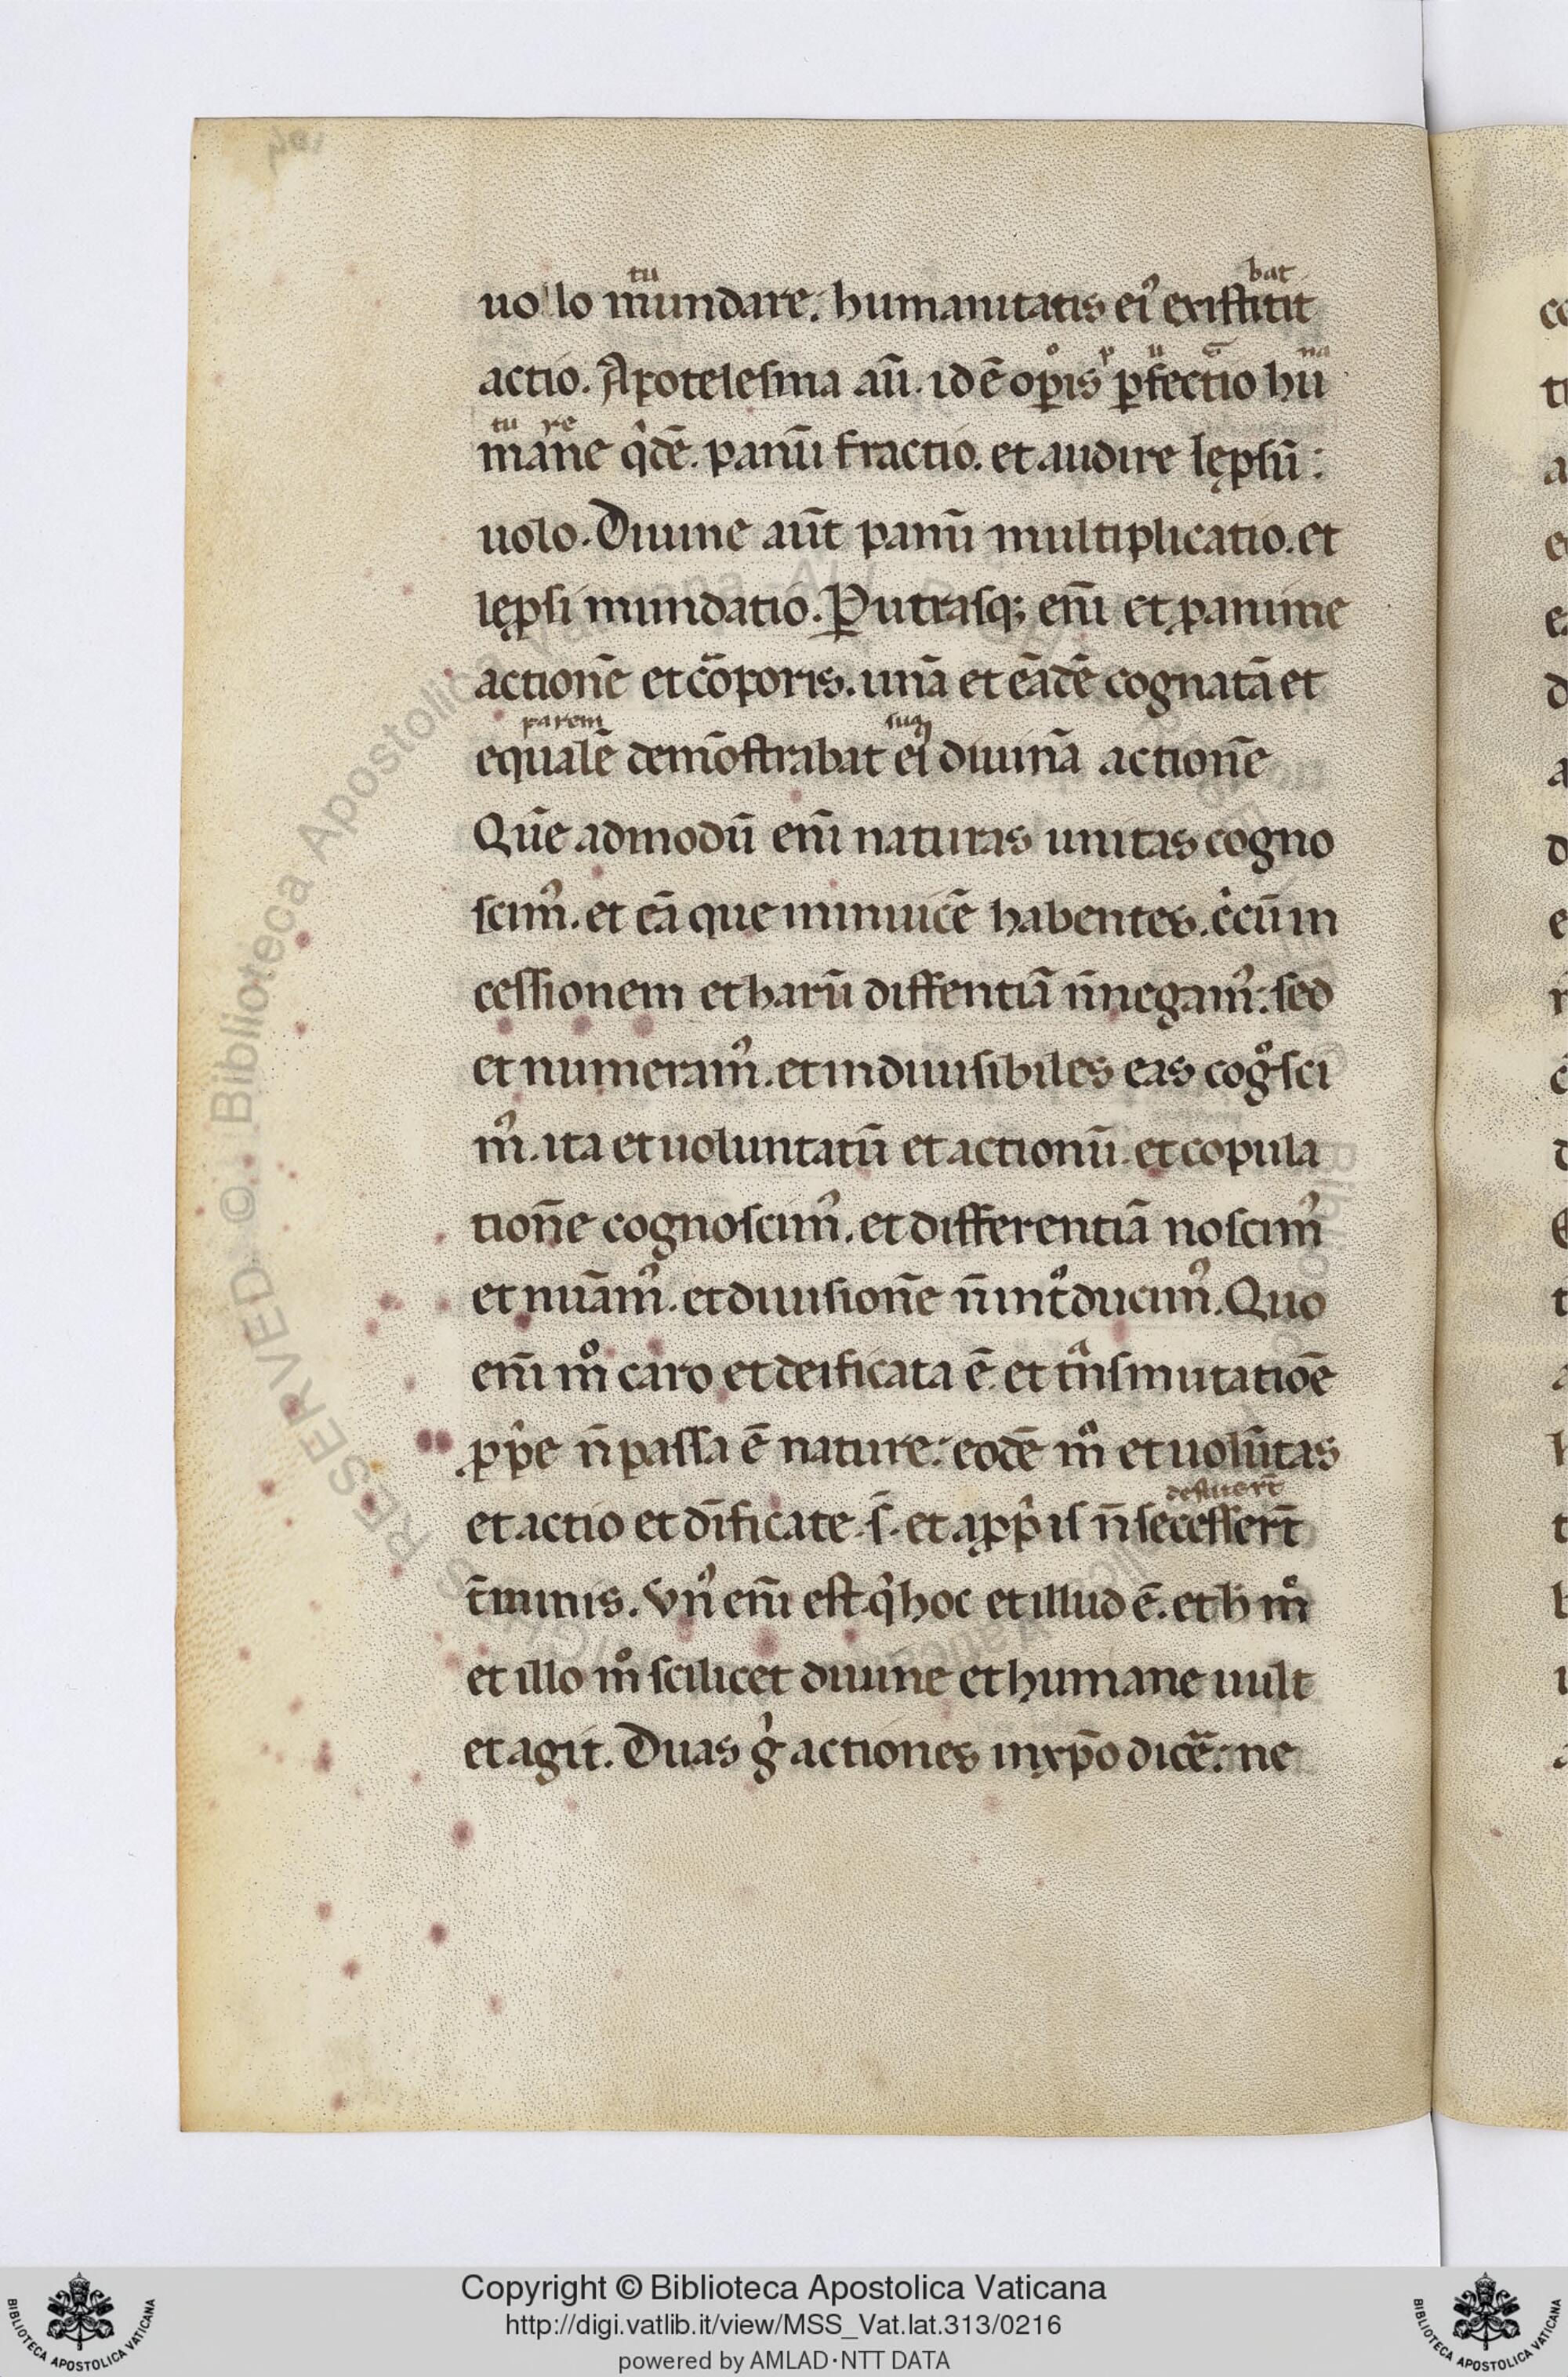 tu bat
uolo mundare. humanitatis ei᾽ existitit
actio. Apotelesma aū. idē op̄is p̄fectio hu
na
tu re
mane q̓dē. panū fractio. et audire lep̄sū:
uolo. Diuine aūt panū multiplicatio. et
lep̄si mundatio. P̱ utrasq; eni̅ et p̱ anime
actionē et cōporis. unā et eādē cognatā et
parem sua
equalē demōstrabat ei᾽ diuinā actionē
Quē admodū eni̅ naturas unitas cogno
scim᾽. et eā que inuicē habentes. c̓cū in
cessionem et harū diffentiā n̄ negam᾽: sed
et numeram᾽. et indiuisibiles eas cog̊sci
m᾽. ita et uoluntatū et actionū. et copula
tionē cognoscim᾽. et differentiā noscim᾽
et nūam᾽. et diuisionē n̄ int̊ducim᾽. Quo
eni̅ m̊ caro et deificata ē. et tᷓnsmutatioē
ꝓp̓e n̄ passa ē nature: eodē m̊ et uolūtas
et actio et dīficate s̄. et a ꝓp̓is n̄ secesser̄t
t̄minis. Vn᾽ eni̅ est q̓ hoc et illud ē. et h̄ m̊
et illo m̊ scilicet diuine et humane uult
et agit. Duas g̓ actiones in xp̄o dicē: ne
Copyright © Biblioteca Apostolica Vaticana
http://digi.vatlib.it/view/MSS_Vat.lat.313/0216
powered by AMLAD·NTT DATA
BIBLIOTECA APOSTOLICA VATICANA
BIBLIOTECA APOSTOLICA VATICANA